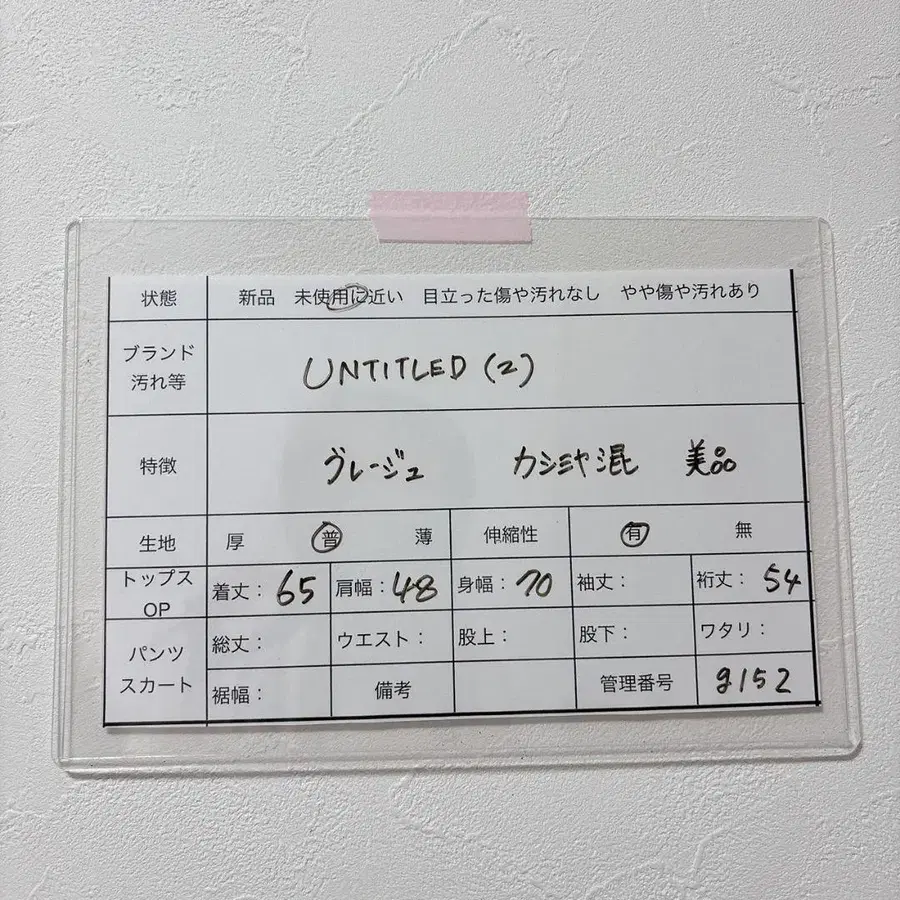 状態 新品 未使用に近い 目立った傷や汚れなし やや傷や汚れあり
ブランド
汚れ等 UNTITLED (2)
特徴 グレージュ カシミヤ混 美品
生地 厚 普 薄 伸縮性 有 無
トップス
OP 着丈: 65 肩幅: 48 身幅: 70 袖丈: 裄丈: 54
パンツ
スカート 総丈: ウエスト: 股上: 股下: ワタリ:
裾幅: 備考 管理番号 g152